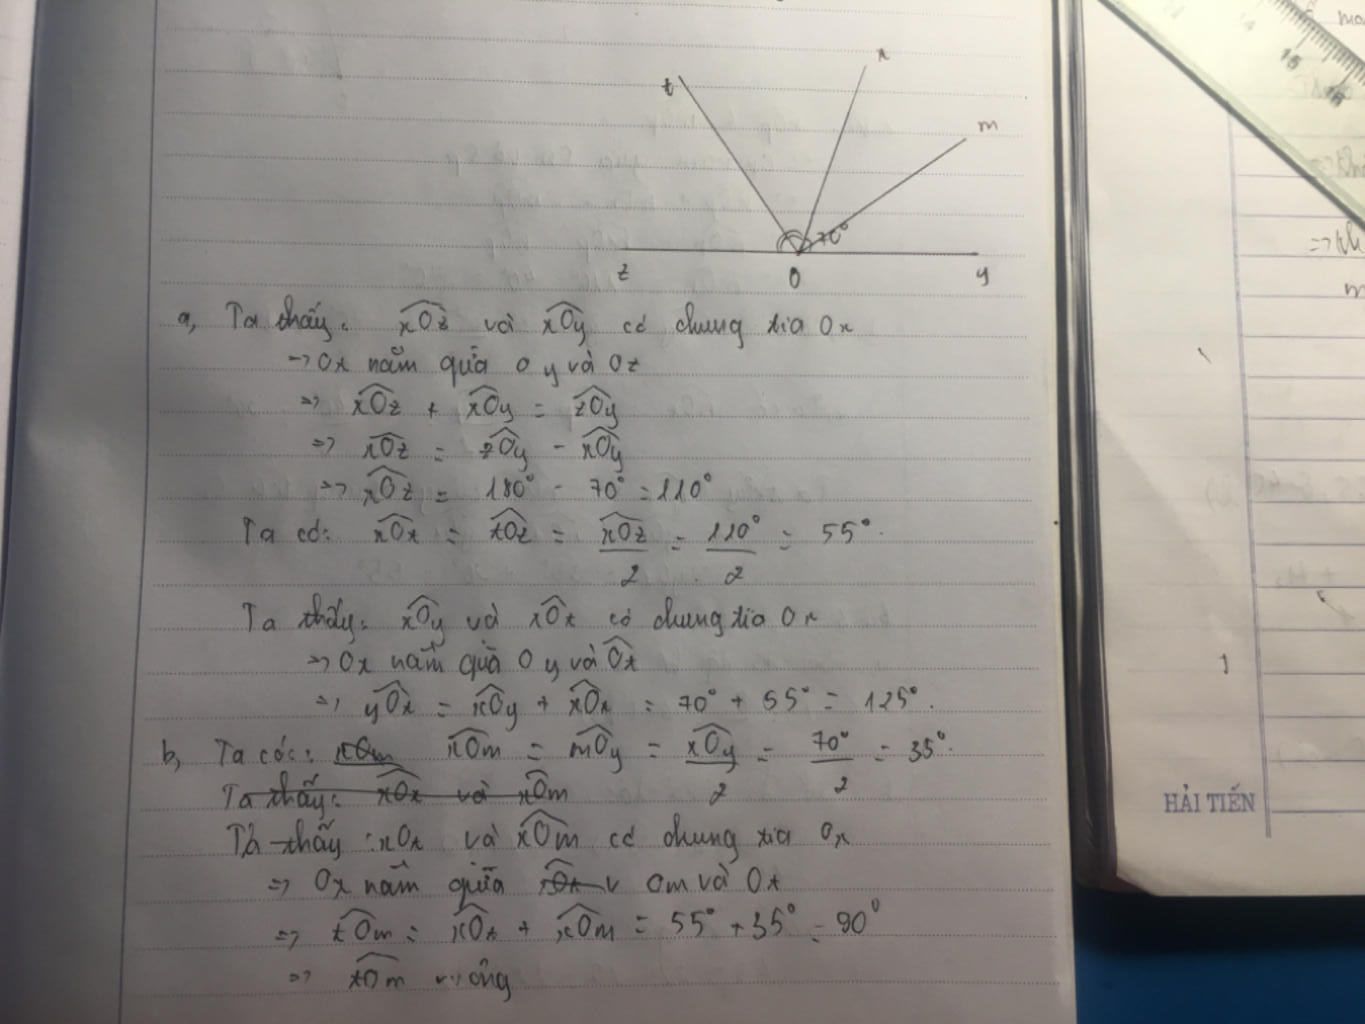 x
t
m
70°
z
O
y
a, Ta thấy: xOz và xOy có chung tia Ox
=> Ox nằm giữa Oy và Oz
=> xOz + xOy = zOy
=> xOz = zOy - xOy
=> xOz = 180° - 70° = 110°
Ta có: xOt = tOz = xOz/2 = 110°/2 = 55°.
Ta thấy: xOy và xOt có chung tia Ox
=> Ox nằm giữa Oy và Ot
=> yOt = xOy + xOt = 70° + 55° = 125°.
b, Ta có: xOm xOm = mOy = xOy/2 = 70°/2 = 35°.
Ta thấy: xOt và xOm
Ta thấy: xOt và xOm có chung tia Ox
=> Ox nằm giữa Om và Ot
=> tOm = xOt + xOm = 55° + 35° = 90°
=> tOm vuông
14
15
16
HẢI TIẾN